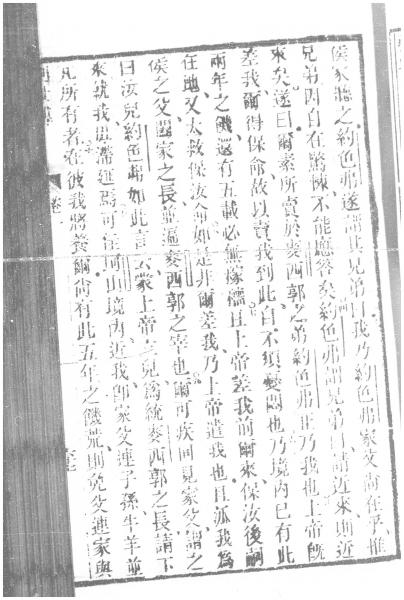 侯家聽之約色弗遂謂其兄弟曰我乃約色弗家父尚在乎惟
兄弟因自在驚悚不能應答矣約色弗謂兄弟曰請近來則近
來矣遂曰爾素所賣於麥西郭之弟約色弗正乃我也上帝旣
差我爾得保命故以賣我到此自不須憂悶也乃境內已有此
兩年之饑還有五載必無稼穡且上帝差我前爾來保汝後嗣
在地又大救保汝命如是非爾差我乃上帝遣我也且派我為
侯之父闔家之長並遍麥西郭之宰也爾可疾回見家父謂之
曰汝兒約色弗如此言云蒙上帝立兒為統麥西郭之長請下
來就我毋滯延焉可住山境內近我卽家父連子孫牛羊並
凡所有者在彼我將養爾尚有此五年之饑荒則免父連家與
卷